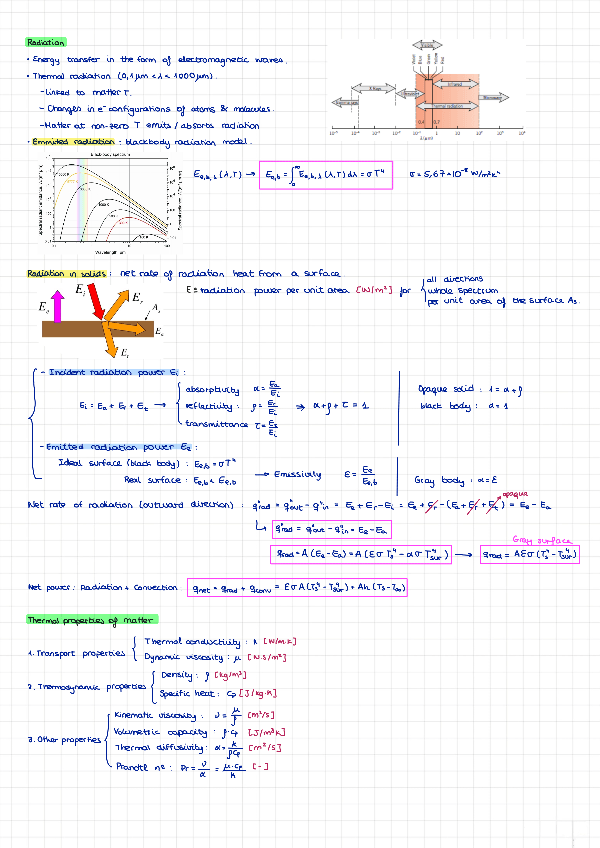 Radiation
• Energy transfer in the form of electromagnetic waves.
• Thermal radiation (0,1μm < λ < 1000μm).
- Linked to matter T.
- Changes in e⁻ configurations of atoms & molecules.
- Matter at non-zero T emits / absorbs radiation
• Emmited radiation : blackbody radiation model.
Visible
X Rays
Ultraviolet
Infrared
Gamma rays
Thermal radiation
Microwave
0.4 0.7
λ (μm)
Blackbody spectrum
Wavelength, um
E_{e,b,λ} (λ,T) → E_{e,b} = ∫₀^∞ E_{e,b,λ} (λ,T) dλ = σT⁴ σ = 5,67*10⁻⁸ W/m²K⁴
Radiation in solids : net rate of radiation heat from a surface
E = radiation power per unit area [W/m²] for { all directions
whole spectrum
per unit area of the surface As.
E_e E_i E_r A_s
E_a
E_t
- Incident radiation power Ei :
E_i = E_a + E_r + E_t →
absorptivity α = E_a/E_i
reflectivity : ρ = E_r/E_i ⇒ α + ρ + τ = 1
transmittance τ = E_t/E_i
Opaque solid : 1 = α + ρ
black body : α = 1
- Emitted radiation power Ee :
Ideal surface (black body) : E_{e,b} = σT⁴
Real surface : E_{e,b} < E_{e,b}
→ Emissivity ε = E_e/E_{e,b}
Gray body : α = ε
Net rate of radiation (outward direction) : q"rad = q"out - q"in = E_e + E_r - E_i = E_e + E_r - (E_a + E_r + E_t) = E_e - E_a
opaque
↳ q"rad = q"out - q"in = E_e - E_a
Gray surface
q_rad = A (E_e - E_a) = A (εσ T_s⁴ - ασ T_sur⁴) → q_rad = Aεσ (T_s⁴ - T_sur⁴)
Net power : Radiation + Convection q_net = q_rad + q_conv = εσA (T_s⁴ - T_sur⁴) + Ah (T_s - T_∞)
Thermal properties of matter
1. Transport properties {
Thermal conductivity : k [W/m·K]
Dynamic viscosity : μ [N·s/m²]
2. Thermodynamic properties {
Density : ρ [kg/m³]
Specific heat : Cp [J/kg·K]
3. Other properties {
Kinematic viscosity : ν = μ/ρ [m²/s]
Volumetric capacity : ρ·Cp [J/m³K]
Thermal diffusivity : α = k/ρCp [m²/s]
Prandtl nº : Pr = ν/α = μ·Cp/k [-]